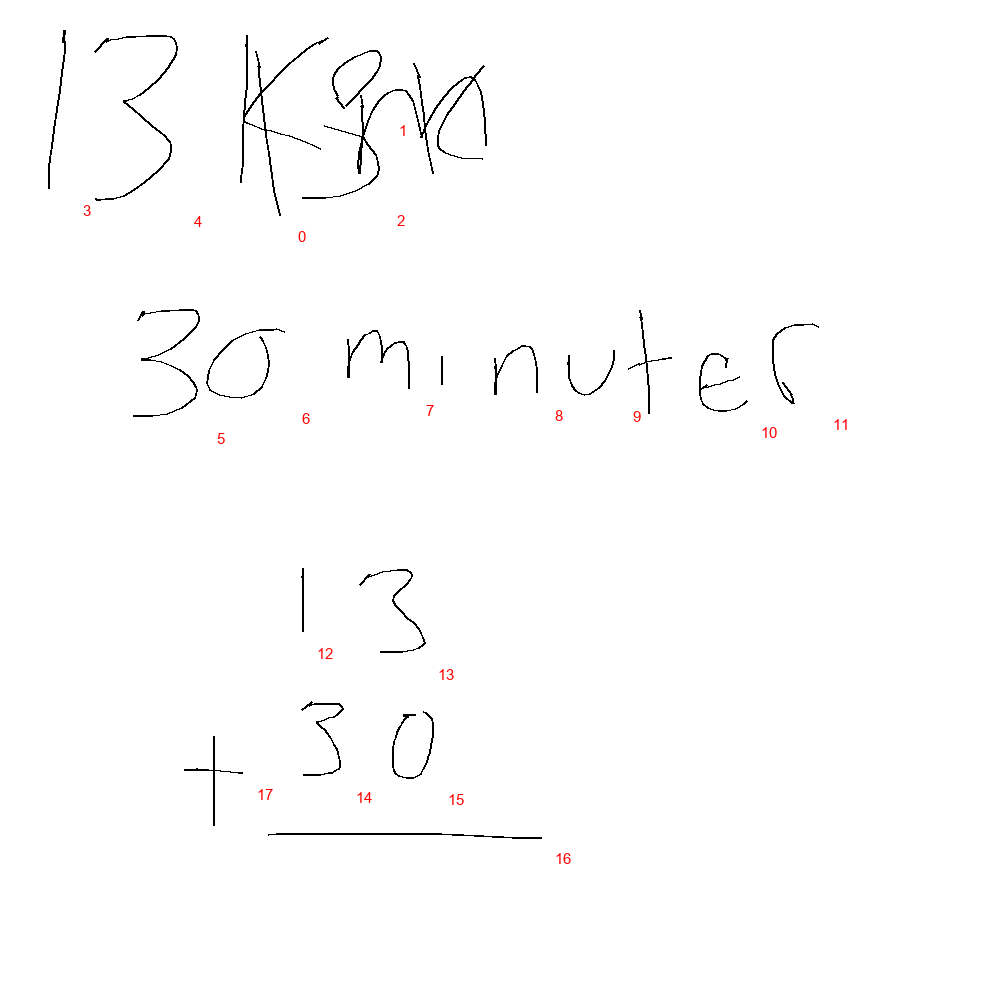 13
1
3 4 0 2
30 minuter
5 6 7 8 9 10 11
13
12 13
+ 30
17 14 15
16